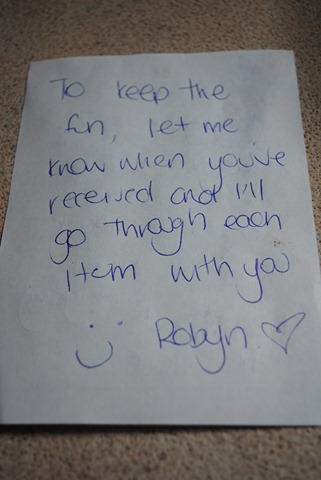 To keep the
fun, let me
know when you've
received and I'll
go through each
item with you
Robyn